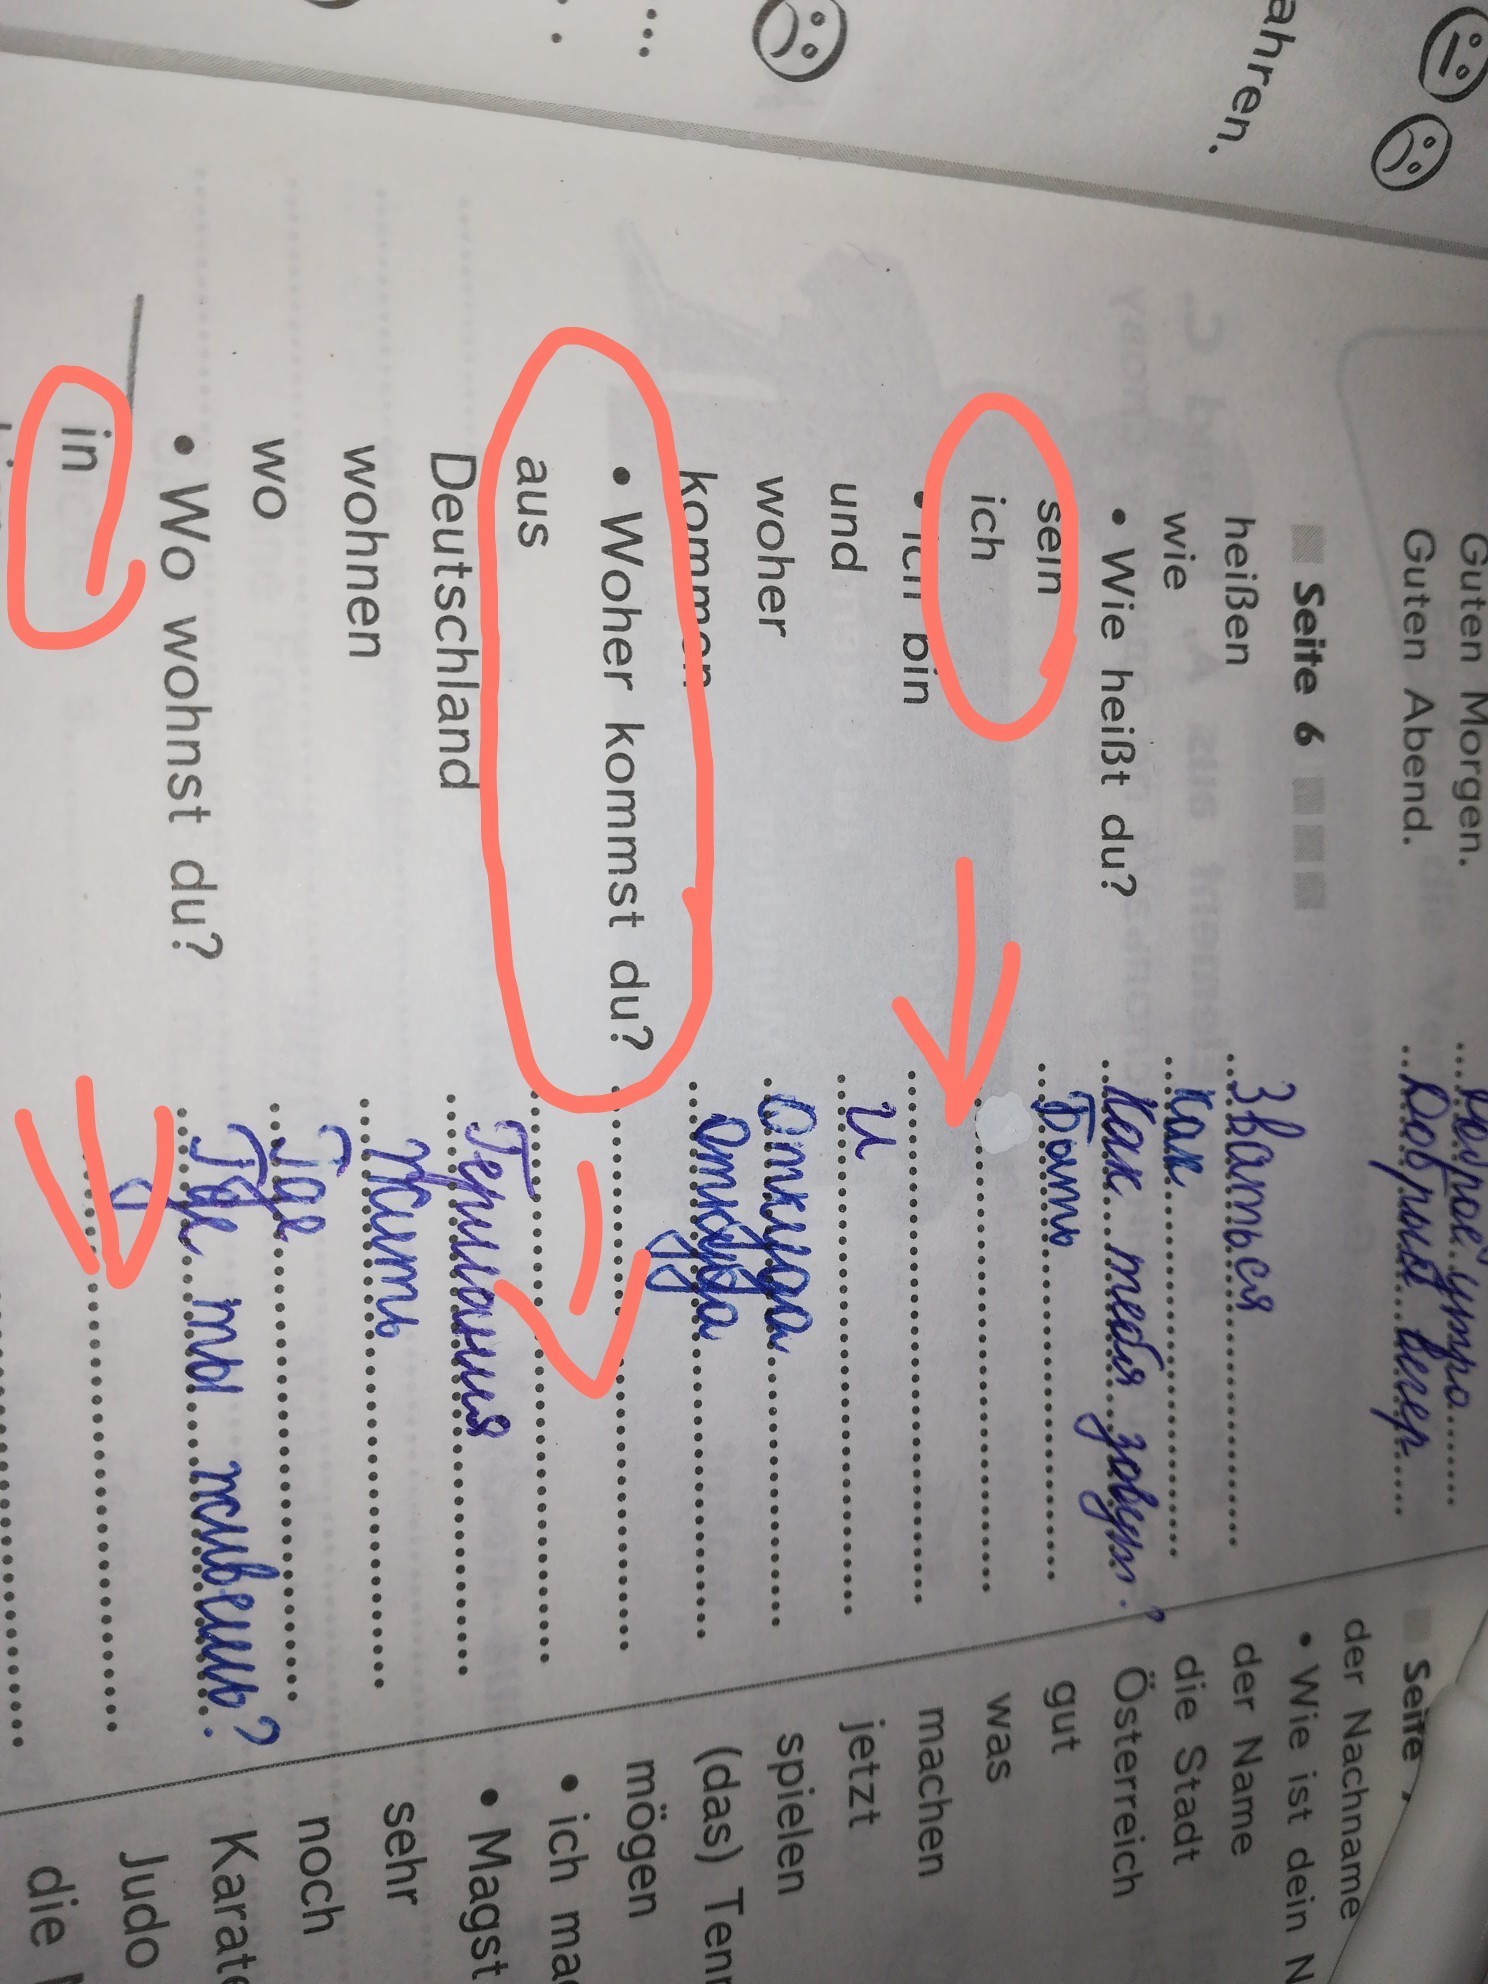 ahren.
Guten Morgen. ... Доброе утро
Guten Abend. ... Добрый вечер
Seite 6
heißen ... Зваться
wie ... как
• Wie heißt du? ... Как тебя зовут?
sein ... Быть
ich
• ich bin
und ... и
woher ... Откуда
kommen ... Откуда
• Woher kommst du?
aus
Deutschland ... Германия
wohnen ... Жить
wo ... Где
• Wo wohnst du? ... Где ты живешь?
in
Seite 7
der Nachname
• Wie ist dein N
der Name
die Stadt
Österreich
gut
was
machen
jetzt
spielen
(das) Ten
mögen
• ich ma
• Magst
sehr
noch
Karate
Judo
die